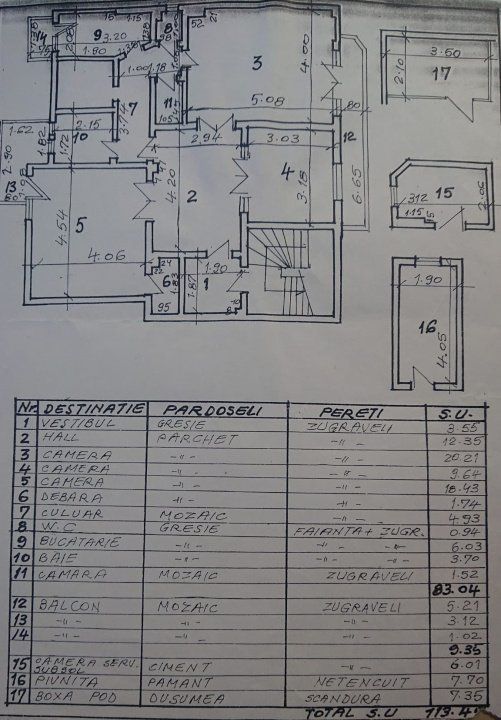 14 .75 9 3.20 8 52 21
1.80 1.38 3 4.00 3.50
1.00 1.18 2.10 17
7 11 5.08
1.62 2.15 105 80
10 3.74 2.94 3.03 12
1.82 1.72 4
2.90 4.20 3.18 6.65 15
13 1.98 2 312 2.06
5 1.15
4.54
4.06 24 1.90 1.90
22 6 1.83 1 1.87 16
95 4.05
Nr. DESTINATIE PARDOSELI PERETI S.U.
1 VESTIBUL GRESIE ZUGRAVELI 3.55
2 HALL PARCHET -"- 12.35
3 CAMERA -"- -"- 20.21
4 CAMERA -"- -"- 9.64
5 CAMERA -"- -"- 18.43
6 DEBARA -"- -"- 1.74
7 CULUAR MOZAIC -"- 4.93
8 W.C GRESIE FAIANTA + ZUGR. 0.94
9 BUCATARIE -"- -"- -"- 6.03
10 BAIE -"- -"- -"- 3.70
11 CAMARA MOZAIC ZUGRAVELI 1.52
83.04
12 BALCON MOZAIC ZUGRAVELI 5.21
13 -"- -"- -"- 3.12
14 -"- -"- -"- 1.02
9.35
15 CAMERA SERV. SUBSOL CIMENT -"- 6.01
16 PIVNITA PAMANT NETENCUIT 7.70
17 BOXA POD DUSUMEA SCANDURA 7.35
TOTAL S.U